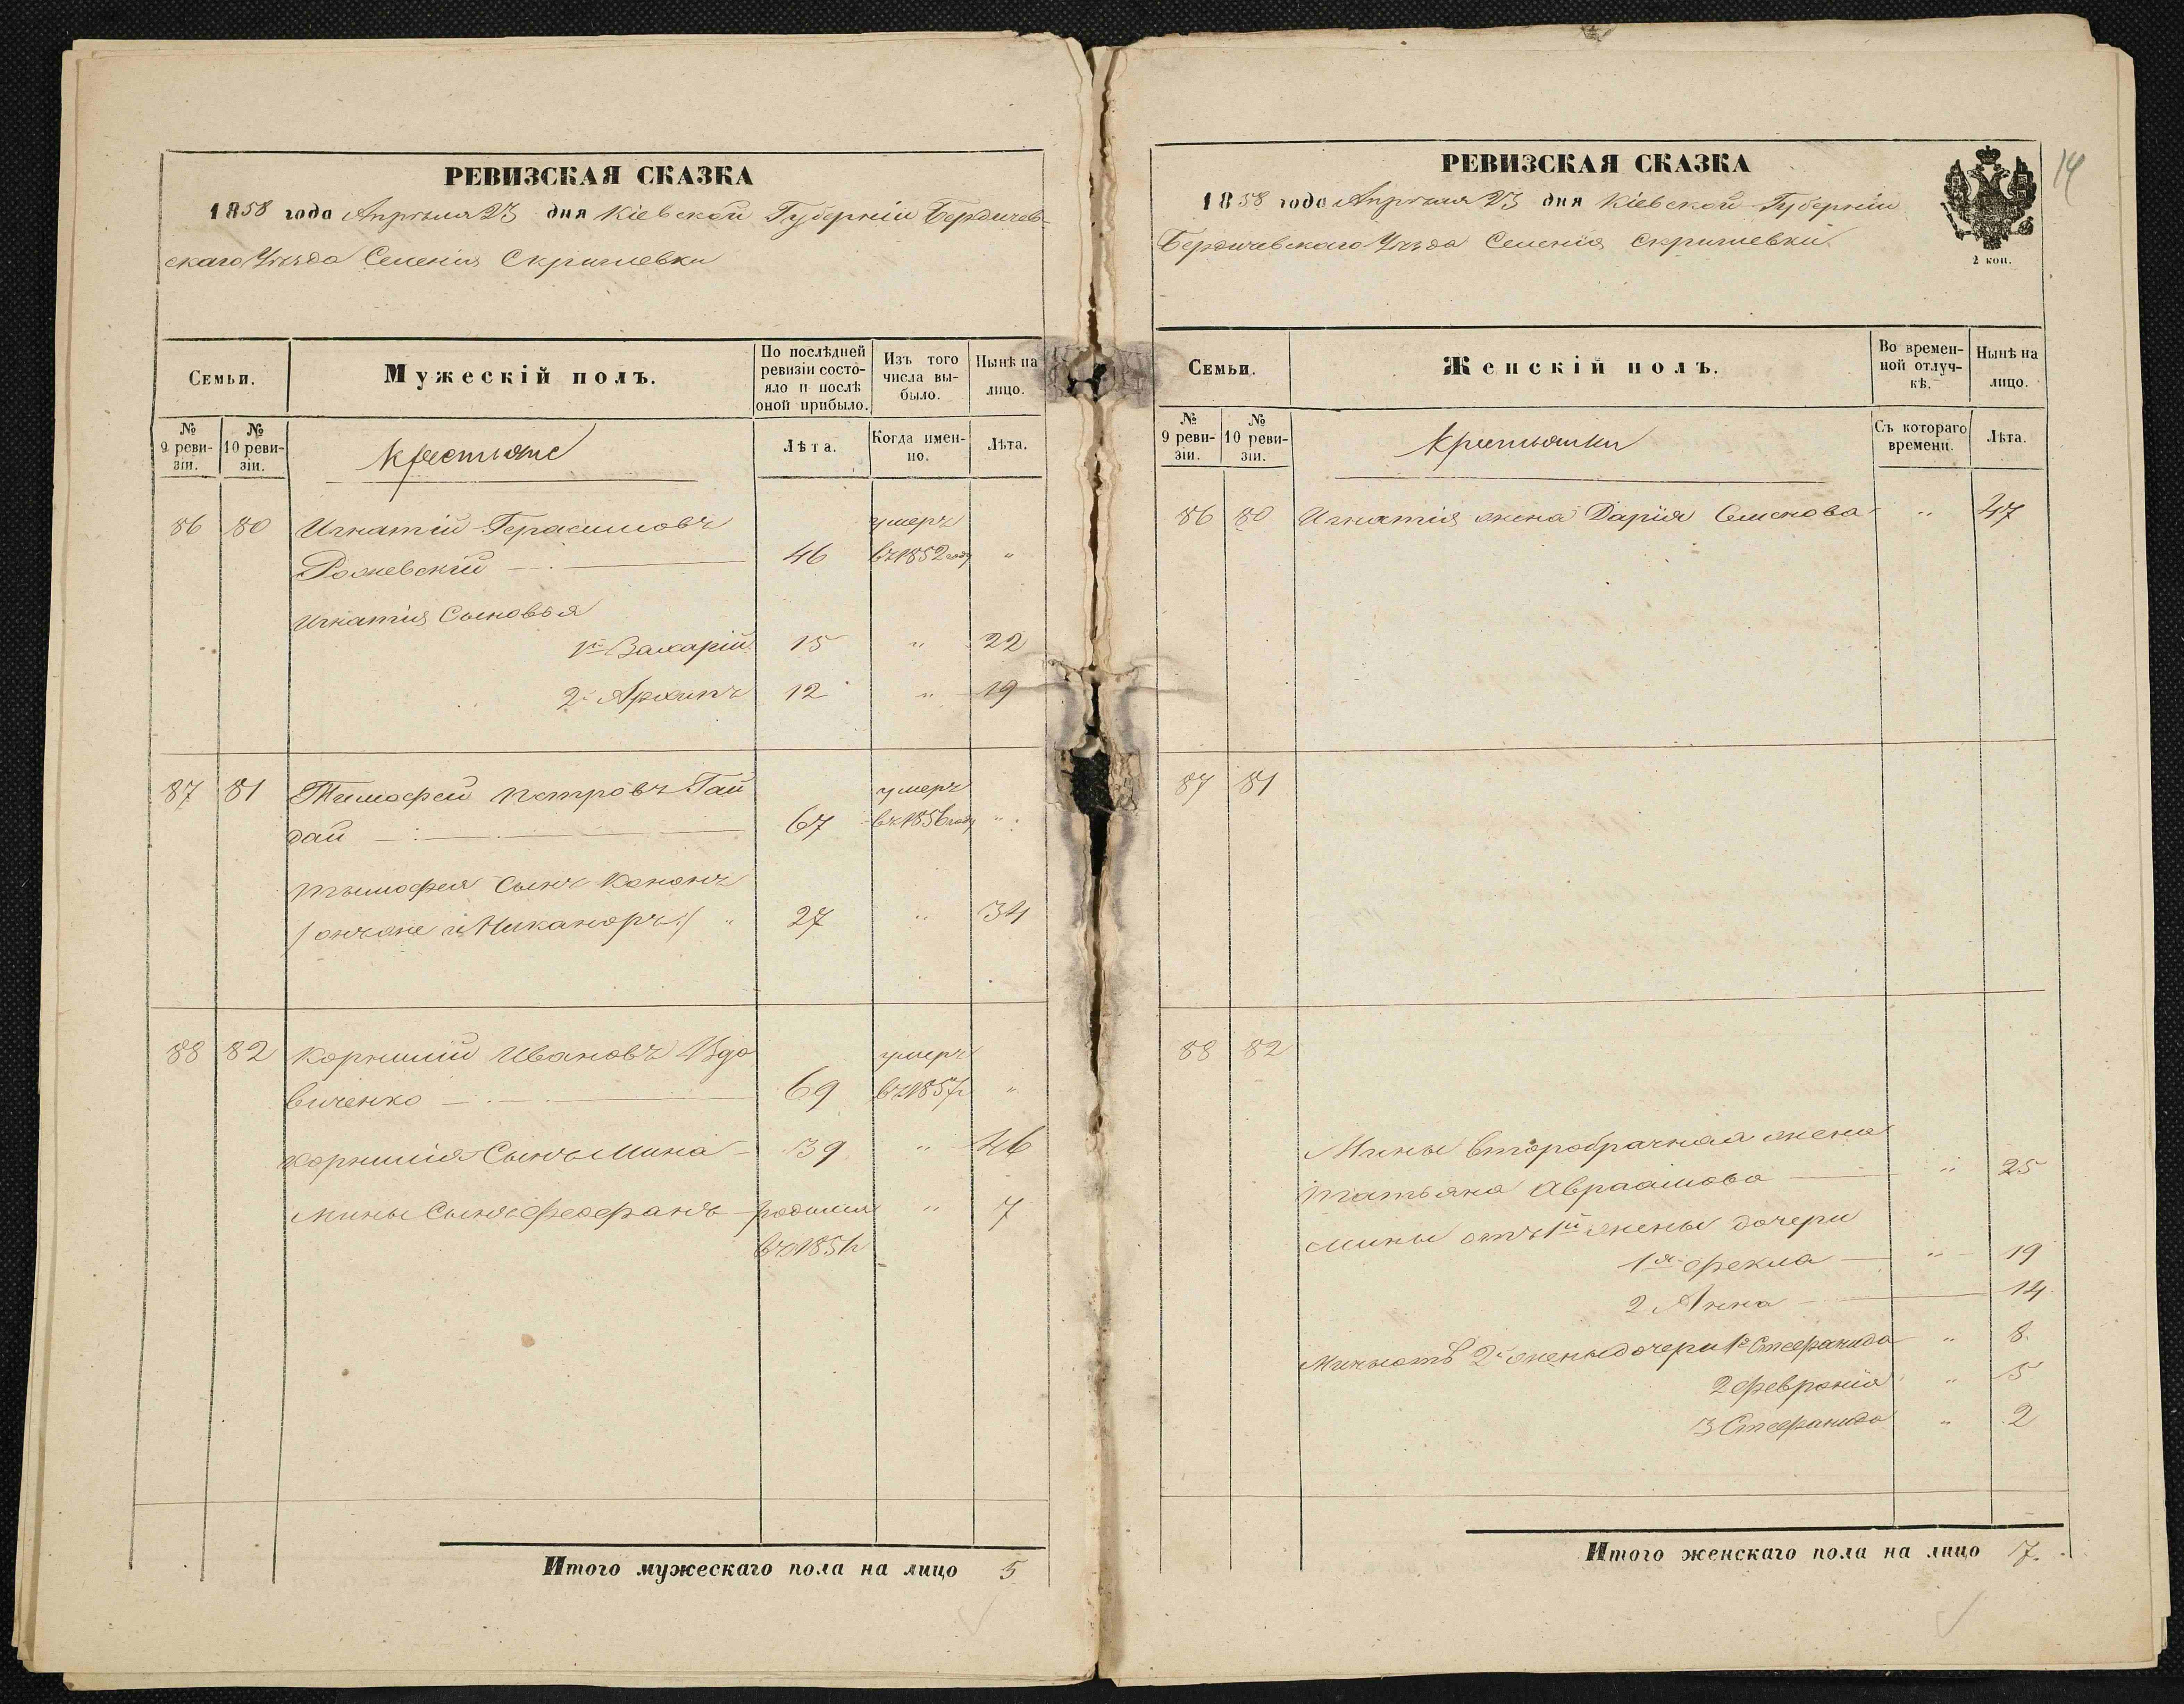 РЕВИЗСКАЯ СКАЗКА
1858 года Апрѣля 23 дня Кіевской Губерніи Бердичев-
скаго Уѣзда Селенія Скригилевки
Семьи.
Мужескій полъ.
По послѣдней ревизіи состо-
яло и послѣ
оной прибыло.
Изъ того
числа вы-
было.
Нынѣ на
лицо.
№
9 реви-
зіи.
№
10 реви-
зіи.
Крестьяне
Лѣта.
Когда имен-
но.
Лѣта.
86 80 Игнатій Герасимовъ умеръ
46 въ 1852 году "
Игнатія Сыновья
1й Захарій 15 " 22
2й Архипъ 12 " 19
87 81 Тимофей Петровъ Гай умеръ
дай 67 въ 1856 году "
Тимофея Сынъ Кононъ
/онъ же и Никаноръ/ " 27 " 34
88 82 Корнилій Ивановъ Вдо умеръ
виченко 69 въ 1857 г "
Корнилія Сынъ Мина 39 " 46
Мины Сынъ Феофанъ родился " 7
въ 1851 г
Итого мужескаго пола на лицо 5
РЕВИЗСКАЯ СКАЗКА
14
1858 года Апрѣля 23 дня Кіевской Губерніи
Бердичевскаго Уѣзда Селенія Скригилевки
2 коп.
Семьи.
Женскій полъ.
Во времен-
ной отлуч-
кѣ.
Нынѣ на
лицо.
№
9 реви-
зіи.
№
10 реви-
зіи.
Крестьянки
Съ котораго
времени.
Лѣта.
86 80 Игнатія жена Дарія Семенова " 47
87 81
88 82
Мины второбрачная жена
Татьяна Авраамова " 25
Мины отъ 1й жены дочери
1я Фекла " 19
2 Анна 14
Мины отъ 2й жены дочери 1я Стефанида " 8
2 Февронія " 5
3 Стефанида " 2
Итого женскаго пола на лицо 7.